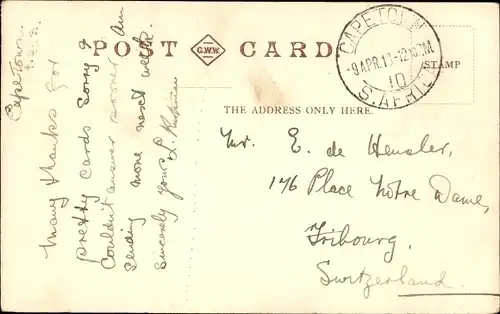 POST G.W.W. CARD
CAPE TOWN
9 APR 10 - 12
10
S. AFRICA
STAMP
THE ADDRESS ONLY HERE.
Cape Town
Many thanks for
pretty cards sorry I
couldn't answer sooner am
sending more next week.
Sincerely yours L.
Mr. E. de Heusler,
176 Place Notre Dame,
Fribourg.
Switzerland.